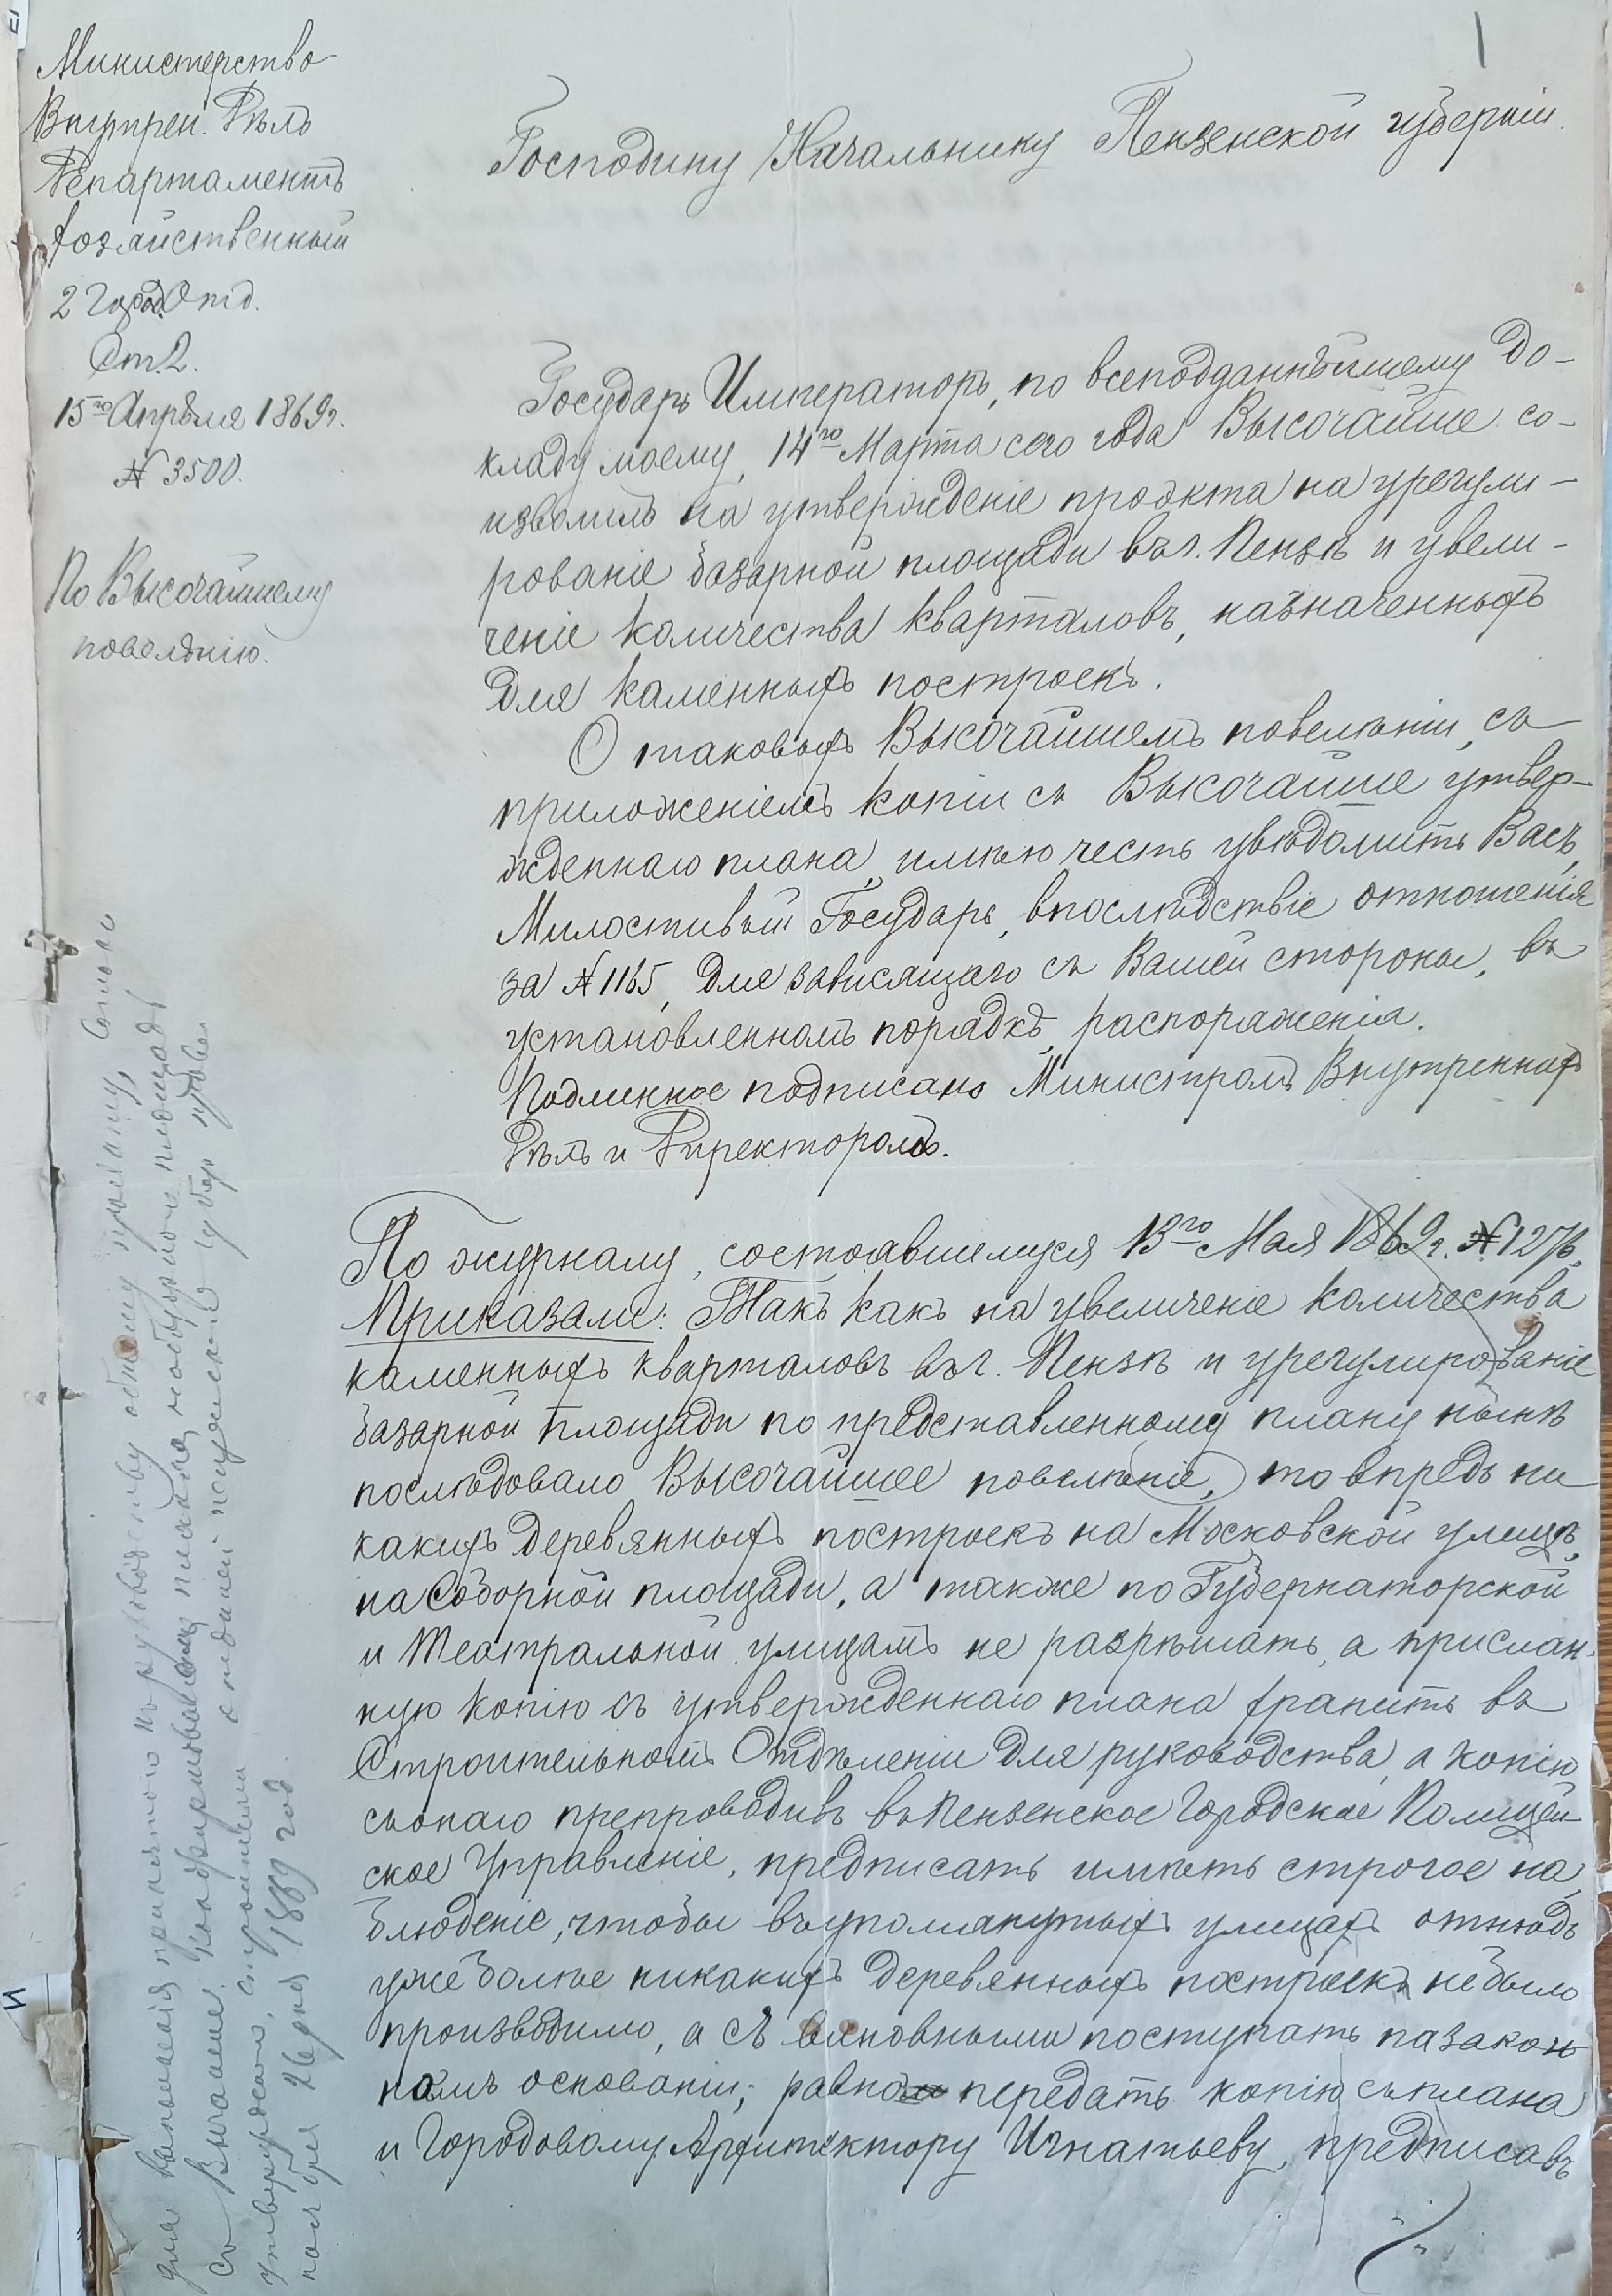 1
Министерство
Внутрен. Дѣлъ
Департаментъ
Хозяйственный
2 Город. Отд.
Ст. 2.
15го Апрѣля 1869 г.
№ 3500.
По Высочайшему
повелѣнію.
Господину Начальнику Пензенской губерніи
Государь Императоръ, по всеподданнѣйшему до-
кладу моему, 14го Марта сего года Высочайше со-
изволилъ на утвержденіе проэкта на урегули-
рованіе базарной площади въ г. Пензѣ и увели-
ченіе количества кварталовъ, назначенныхъ
для каменныхъ построекъ.
О таковыхъ Высочайшемъ повелѣніи, съ
приложеніемъ копіи съ Высочайше утвер-
жденнаго плана, имѣю честь увѣдомить Васъ,
Милостивый Государь, впослѣдствіе отношенія
за № 1165, для зависящаго съ Вашей стороны, въ
установленномъ порядкѣ, распоряженія.
Подлинное подписано Министромъ Внутреннихъ
Дѣлъ и Директоромъ.
По журналу, состоявшемуся 13го Мая 1869 г. № 1276,
Приказали: Такъ какъ на увеличеніе количества
каменныхъ кварталовъ въ г. Пензѣ и урегулированіе
базарной площади по представленному плану нынѣ
послѣдовало Высочайшее повелѣніе, то впредь ни
какихъ деревянныхъ построекъ на Московской улицѣ,
на Соборной площади, а также по Губернаторской
и Театральной улицамъ не разрѣшать, а прислан-
ную копію съ утвержденнаго плана хранить въ
Строительномъ Отдѣленіи для руководства, а копію
съ онаго препроводивъ въ Пензенское Городское Полицей-
ское Управленіе, предписать имѣть строгое на
блюденіе, чтобы въ упомянутыхъ улицахъ отнюдь
уже болѣе никакихъ деревянныхъ построекъ не было
производимо, а съ виновными поступать на закон
номъ основаніи; равно передать копію съ плана
и Городовому Архитектору Игнатьеву, предписавъ
для исполненія принятого къ руководству общему
съ Высочайше конфирмованному плана на
утвержденнаго, строителями
1889 год.